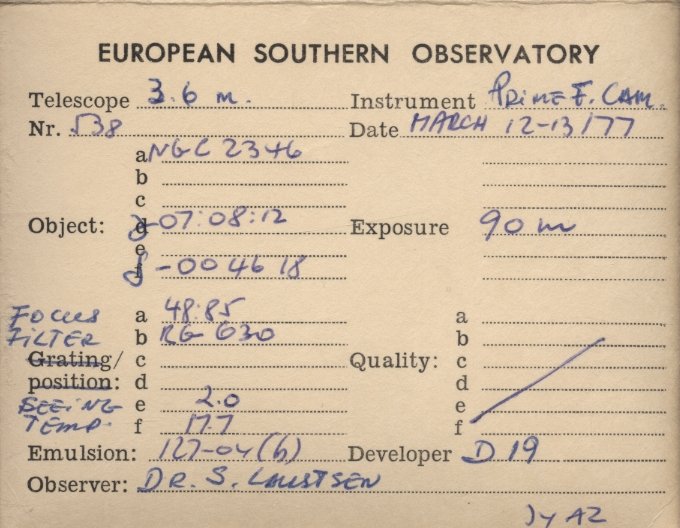 EUROPEAN SOUTHERN OBSERVATORY
Telescope 3.6 m. Instrument PRIME F. CAM.
Nr. 538 Date MARCH 12-13/77
a NGC 2346
b
c
Object: d 07:08:12 Exposure 90 m
e
f δ -00 46 18
FOCUS a 48.85 a
FILTER b RG 630 b
Grating/ c Quality: c
position: d d
SEEING e 2.0 e
TEMP. f 17.7 f
Emulsion: 127-04 (b) Developer D 19
Observer: DR. S. LAUSTSEN